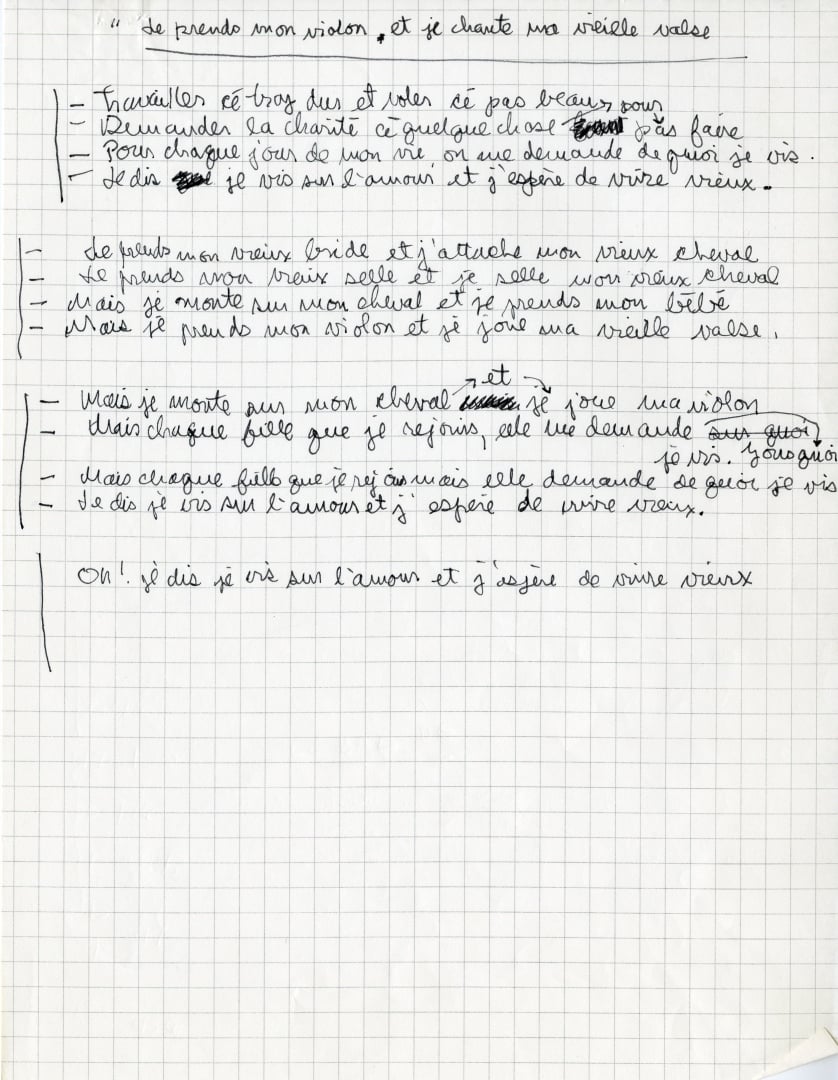 " Je prends mon violon, et je chante ma vieille valse
– Travailles cé trop dus et voles cé pas beaux pour
– Demander la charité cé quelque chose pas faire
– Pour chaque jours de mon vie on me demande de quoi je vis.
– Je dis je vis sur l'amour et j'espère de vivre vieux.
– Je prends mon vieux bride et j'attache mon vieux cheval
– Je prends mon vieux selle et je selle mon vieux cheval
– Mais je monte sur mon cheval et je prends mon bébé
– Mais je prends mon violon et je joue ma vieille valse.
et
– Mais je monte sur mon cheval je joue ma violon
– Mais chaque fille que je rejoins, elle me demande sur quoi
je vis.
– Mais chaque fille que je rejoins mais elle demande de quoi je vis
– Je dis je vis sur l'amour et j'espère de vivre vieux.
Oh! je dis je vis sur l'amour et j'espère de vivre vieux